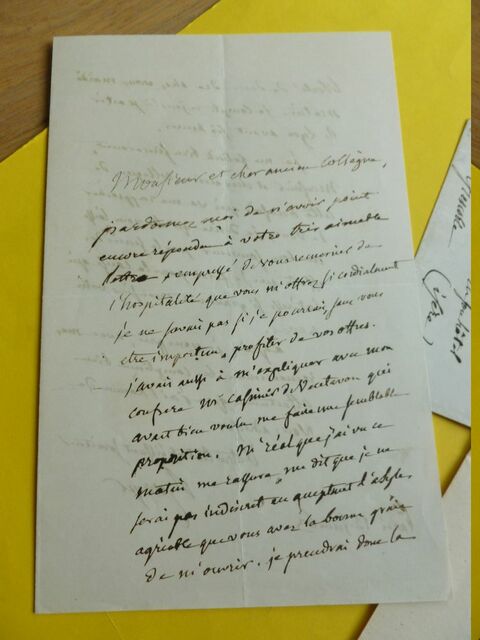 Monsieur et cher ancien Collègue,
pardonnez moi de n'avoir point
encore répondu à votre très aimable
lettre et de vous remercier de
l'hospitalité que vous m'offrez si cordialement
je ne savais pas si je pourrais, sans vous
être importun, profiter de vos offres.
j'avais aussi à m'expliquer avec mon
confrère Mr Casimir de Ventavon qui
avait bien voulu me faire une semblable
proposition. Mr réal que j'ai vu ce
matin me rassure, me dit que je ne
serai pas indiscret en acceptant l'asyle
agréable que vous avez la bonne grâce
de m'ouvrir. je prendrai donc la
Grenoble
(isère)